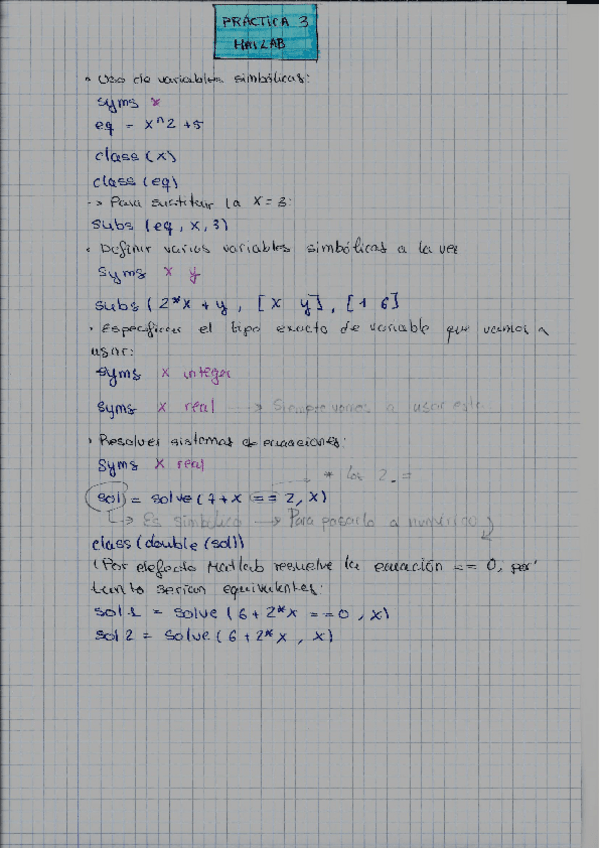 PRÁCTICA 3
MATLAB
• Uso de variables simbólicas:
syms x
eq = x^2 +5
class (x)
class (eq)
-> Para sustituir la x = 3:
subs (eq, x, 3)
• Definir varias variables simbólicas a la vez
syms x y
subs (2*x + y, [x y], [1 6]
• Especificar el tipo exacto de variable que vamos a
usar:
syms x integer
syms x real --> Siempre vamos a usar este
• Resolver sistemas de ecuaciones:
syms x real
* los 2 =
sol = solve (7+x == 2, x)
↳> Es simbólico —> Para pasarlo a numérico
class (double (sol))
(Por defecto Matlab resuelve la ecuación == 0, por
tanto serían equivalentes:
sol 1 = solve (6 + 2*x ==0, x)
sol 2 = solve (6 + 2*x, x)